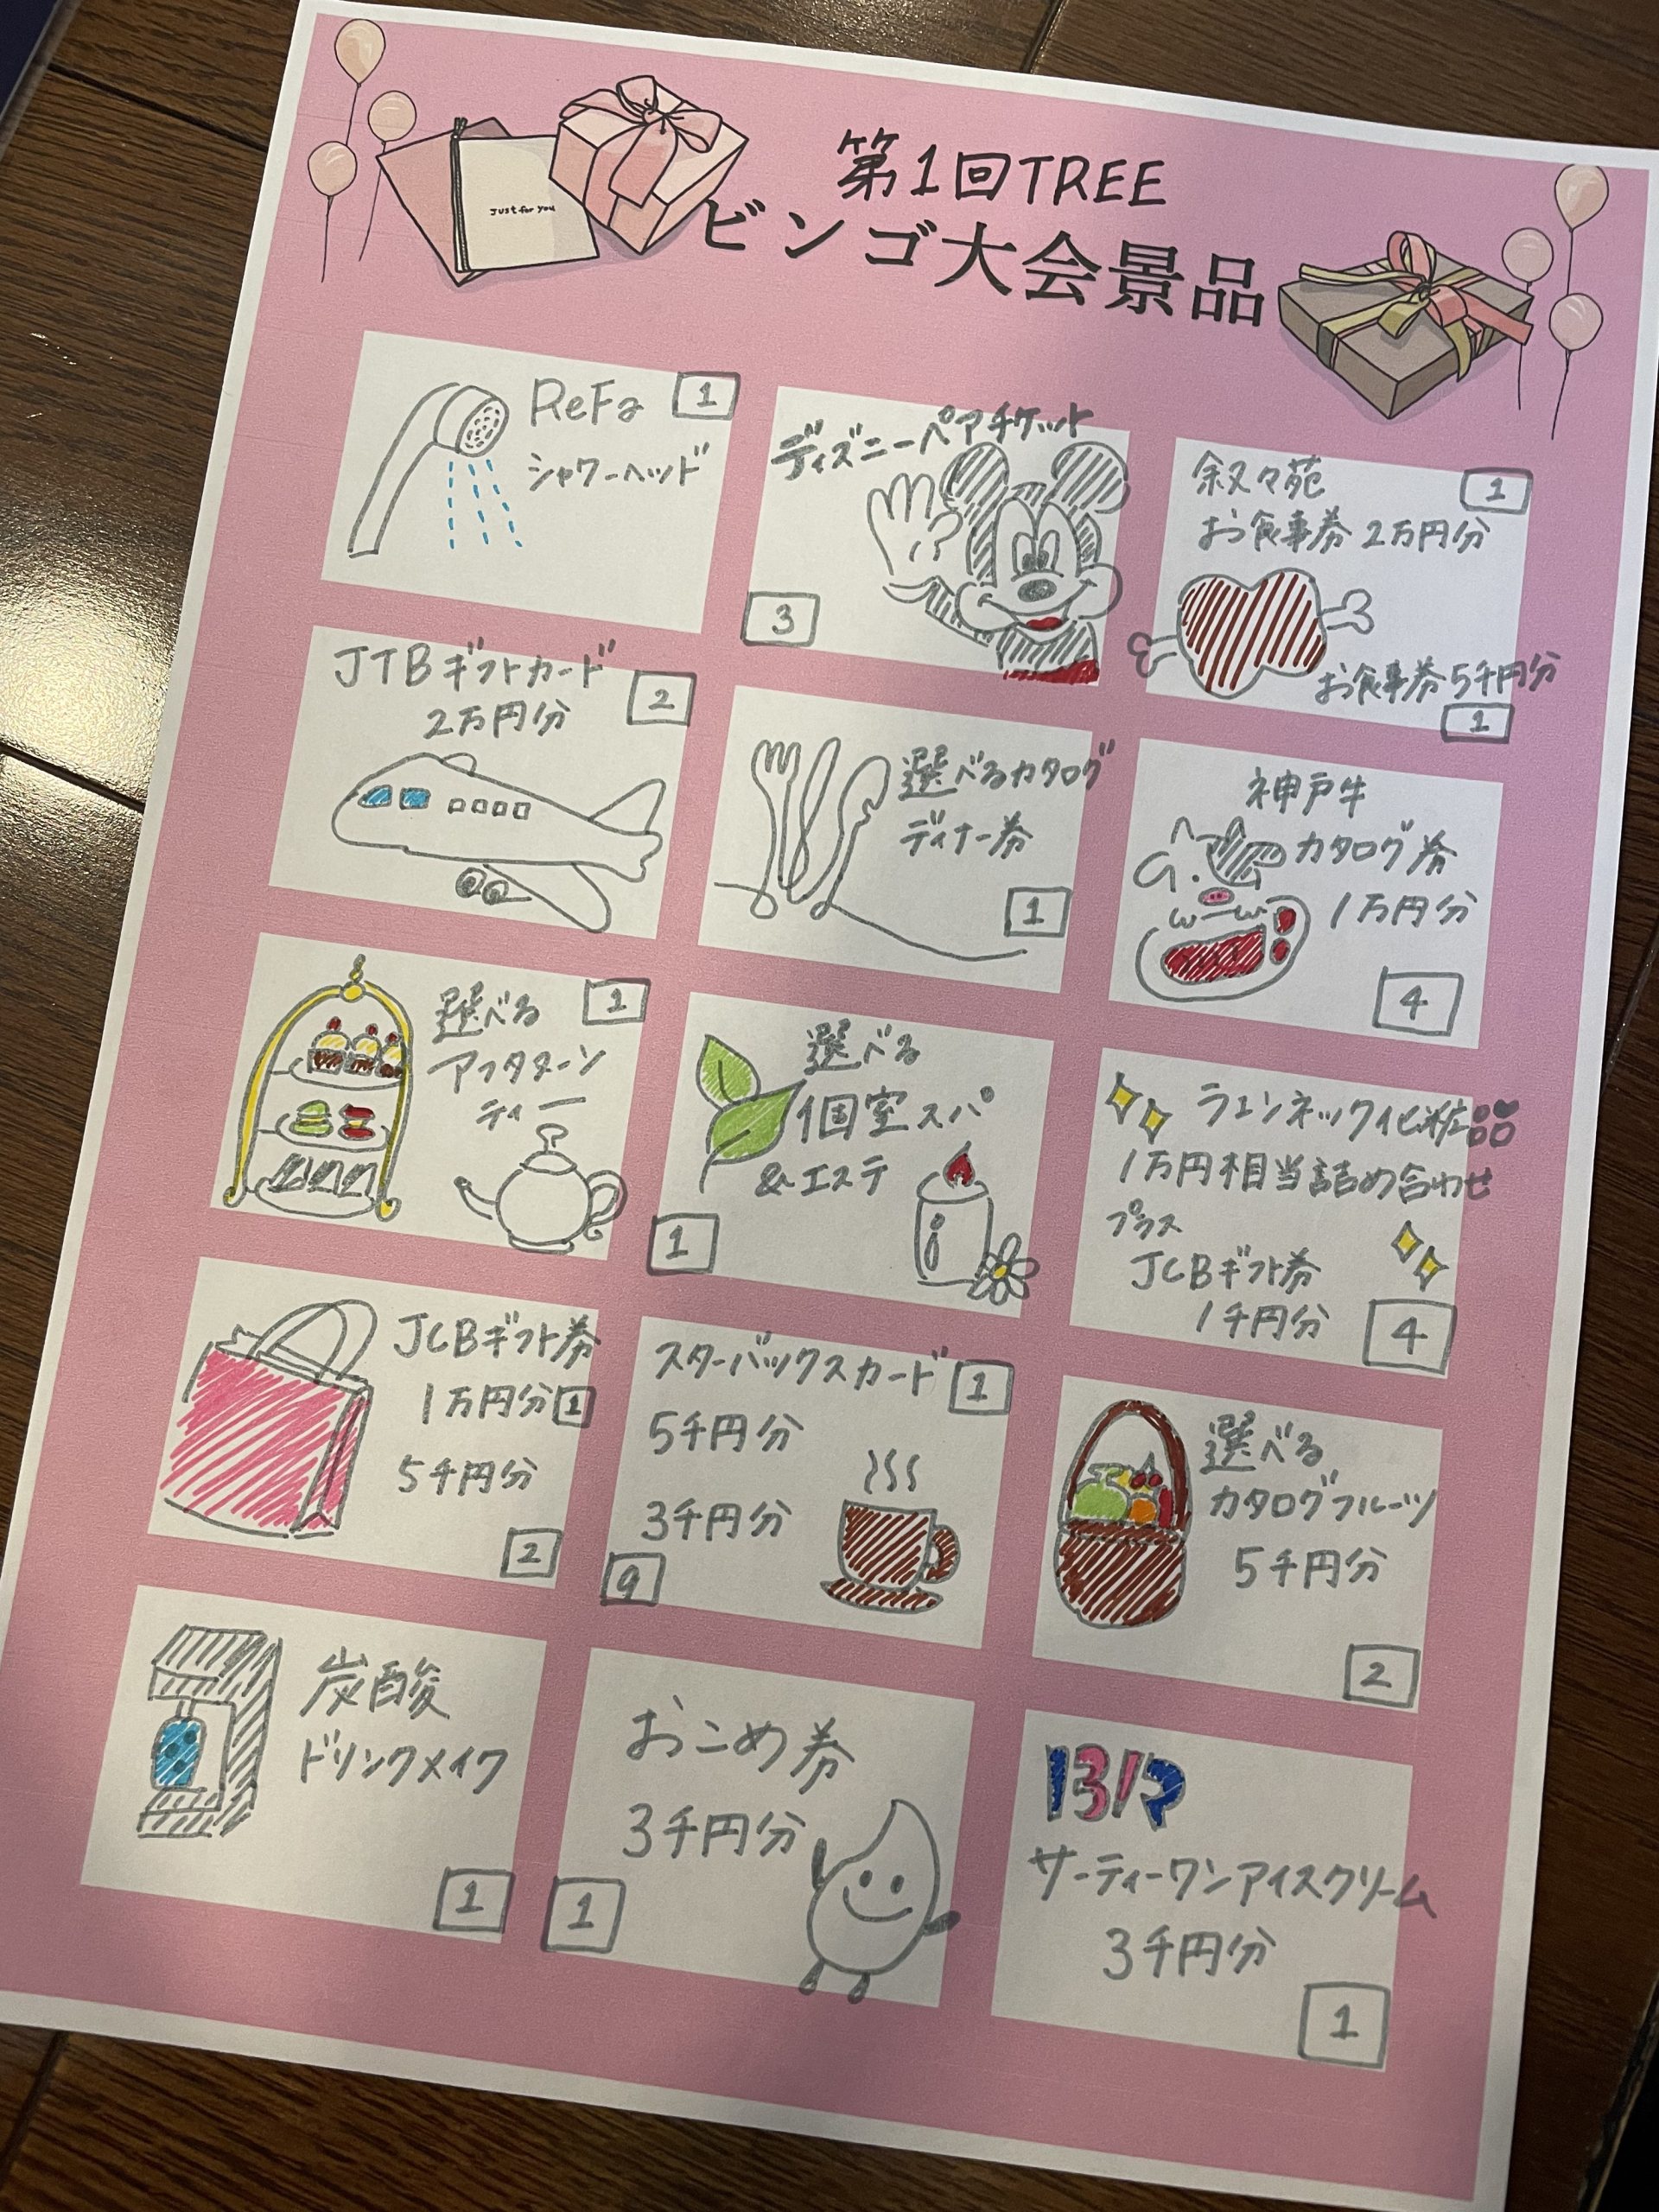 Just for you
第1回TREE
ビンゴ大会景品
ReFa
1
シャワーヘッド
ディズニーペアチケット
3
叙々苑
1
お食事券 2万円分
お食事券 5千円分
1
JTBギフトカード
2万円分
2
選べるカタログ
ディナー券
1
神戸牛
カタログ券
1万円分
4
選べる
1
アフタヌーン
ティー
選べる
個室スパ
&エステ
1
ラエンネック化粧品
1万円相当詰め合わせ
プラス
JCBギフト券
1千円分
4
JCBギフト券
1万円分 1
5千円分
2
スターバックスカード
1
5千円分
3千円分
9
選べる
カタログフルーツ
5千円分
2
炭酸
ドリンクメイク
1
おこめ券
3千円分
1
B1R
サーティーワンアイスクリーム
3千円分
1